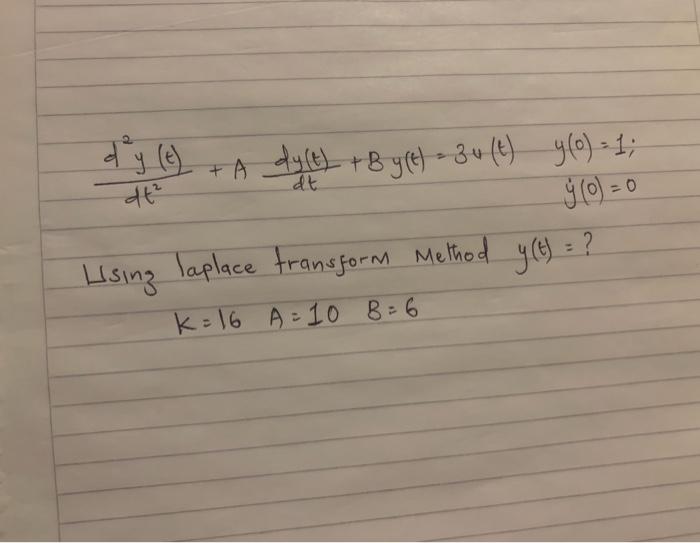 d²y(t)/dt² + A dy(t)/dt + By(t) = 3u(t) y(0) = 1;
ẏ(0) = 0
Using laplace transform Method y(t) = ?
K = 16 A = 10 B = 6